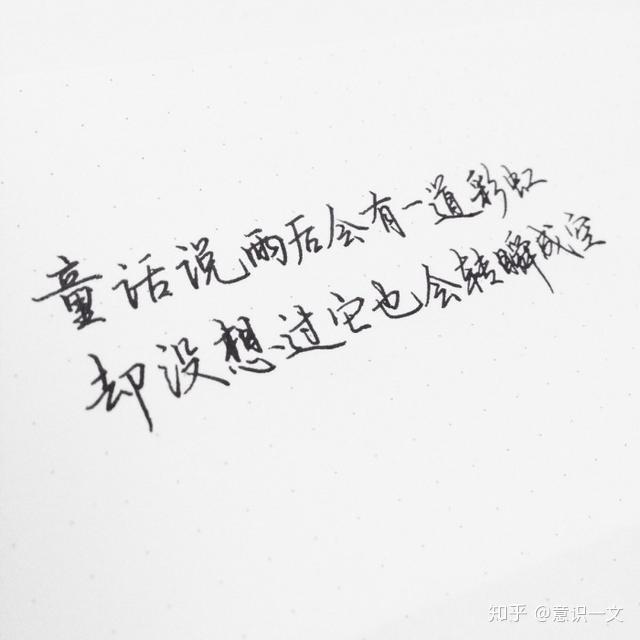 童话说雨后会有一道彩虹
却没想过它也会转瞬成空
知乎 @意识一文